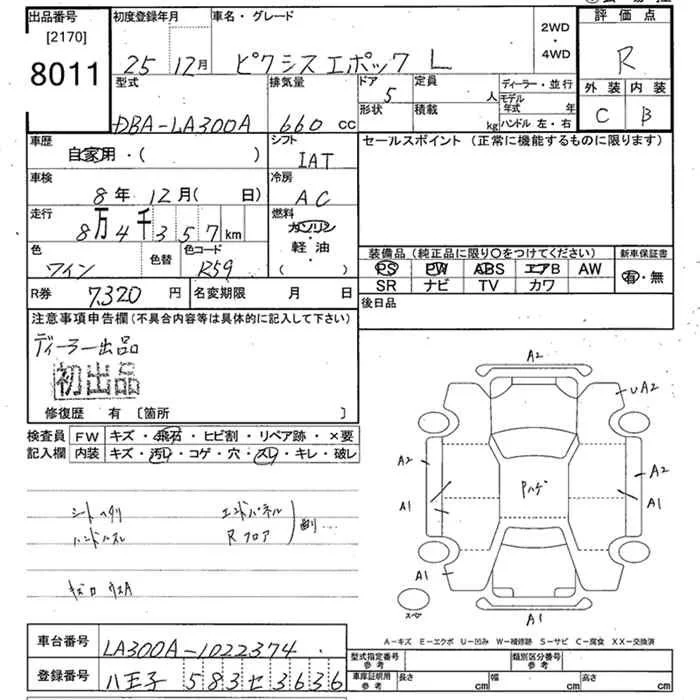 出品番号
[2170]
8011
初度登録年月
25 12月
車名・グレード
ピクシスエポック L
2WD
・
4WD
評価点
R
外装 内装
C B
型式
DBA-LA300A
排気量
660 cc
ドア
5
形状
定員
人
積載
kg
ディーラー・並行
モデル
年式 年
ハンドル 左・右
車歴
自家用・( )
シフト
IAT
車検
8年 12月( 日)
冷房
AC
走行
8万4千357km
燃料
ガソリン
・
軽油
( )
色
ワイン
色替
色コード
R59
R券 7,320 円
名変期限 月 日
セールスポイント (正常に機能するものに限ります)
装備品 (純正品に限り○をつけてください)
PS PW ABS エアB AW
SR ナビ TV カワ
新車保証書
有・無
後日品
注意事項申告欄(不具合内容等は具体的に記入して下さい)
ディーラー出品
初出品
修復歴 有 [箇所 ]
検査員
記入欄
FW キズ・飛石・ヒビ割・リペア跡・×要
内装 キズ・汚レ・コゲ・穴・スレ・キレ・破レ
エンドパネル
Rフロア
A2
A2
A2
A2
A1
A1
Pハゲ
A1
A1
スペア
A-キズ E-エクボ U-凹み W-補修跡 S-サビ C-腐食 XX-交換済
車台番号
LA300A-1022374
登録番号
八王子 583セ3636
型式指定番号
参考
類別区分番号
参考
車庫証明用
参考
長さ cm
幅 cm
高さ cm